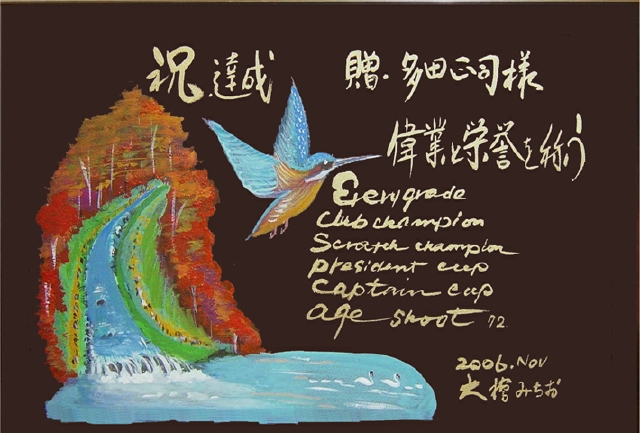 祝.達成
贈.多田正司様
偉業と栄誉を称う
Every grade
Club champion
Scratch champion
president cup
Captain cup
age shoot 72.
2006.Nov
大檜みちお